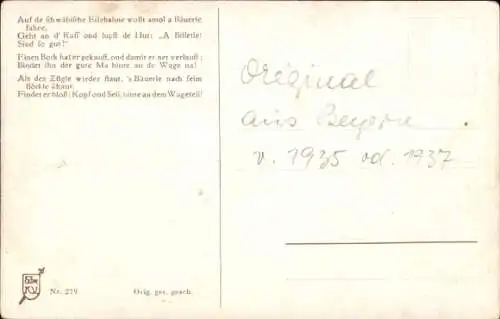 Auf de schwäbische Eisebahne wollt amol a Bäuerle
fahre,
Geht an d' Kass' ond lupft de Hut: „A Billetle!
Sind so gut!"
Einen Bock hat er gekauft, ond damit er net verlauft;
Bindet ihn der gute Ma hinte an de Wage na!
Als des Zügle wieder staut, 's Bäuerle nach seim
Böckle schaut,
Findet er bloß: Kopf ond Seil, hinte an dem Wageteil!
Nr. 219
Orig. ges. gesch.
Original
aus Beyern
v. 1935 od. 1937